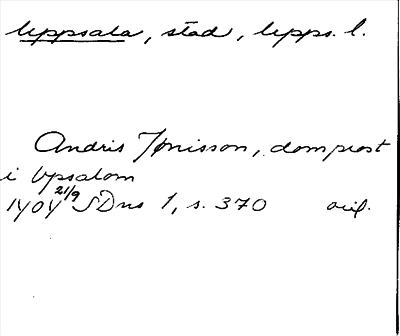 Uppsala, stad, Upps. l.
Andris Jönisson, domprost
i Vpsalom
1404 21/9 SDns 1, s. 370 orig.